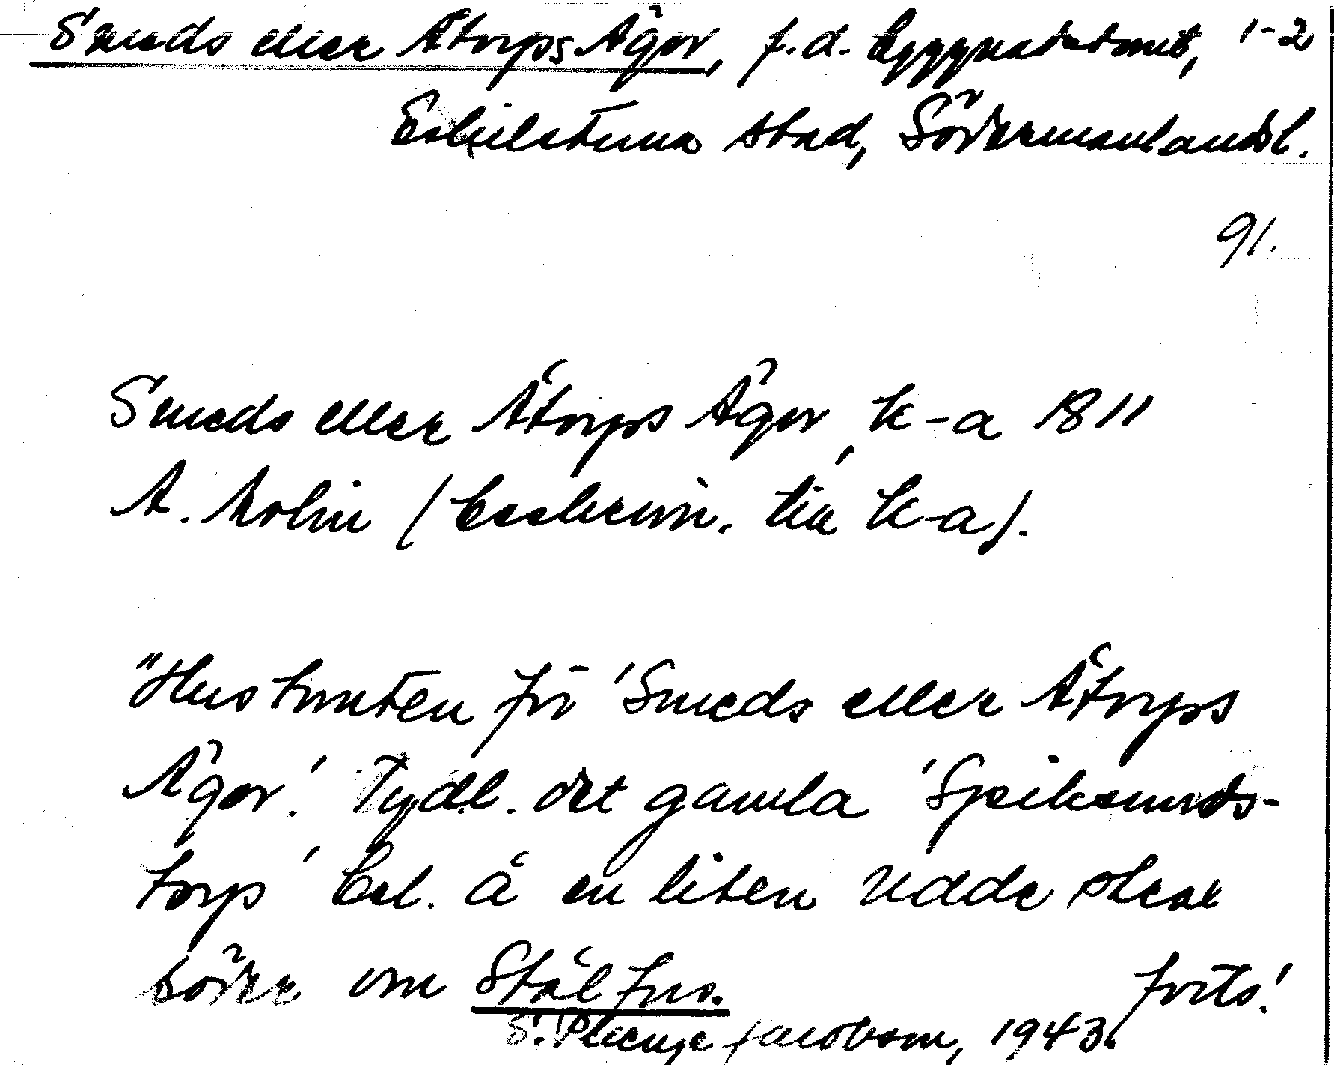 Smeds eller Åtorps Ägor, f.d. byggnadstomt, 1-2
Eskilstuna stad, Södermanlandsl.
91.
Smeds eller Åtorps Ägor, k-a 1811
A. Molin (beskrivn. till k-a).
"Hustomten för 'Smeds eller Åtorps
Ägor'. Tydl. det gamla 'Spiksmeds-
torp' bel. å en liten udde strax
söder om Stålfors. forts!
S. Jacobson, 1943.